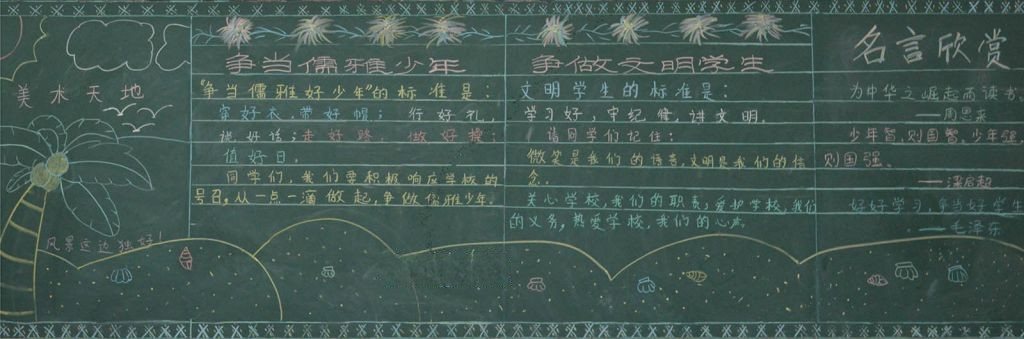 美术天地
风景这边独好!
争当儒雅少年
"争当儒雅好少年"的标准是：
穿好衣，带好帽； 行好礼，
说好话；走好路，做好操；
值好日。
同学们，我们要积极响应学校的
号召，从一点一滴做起，争做儒雅少年.
争做文明学生
文明学生的标准是：
学习好，守纪律，讲文明，
请同学们记住：
微笑是我们的语言，文明是我们的信
念。
关心学校，我们的职责，爱护学校，我们
的义务，热爱学校，我们的心声。
名言欣赏
为中华之崛起而读书。
——周恩来
少年智，则国智。少年强，
则国强。
——梁启超
好好学习，争当好学生
——毛泽东